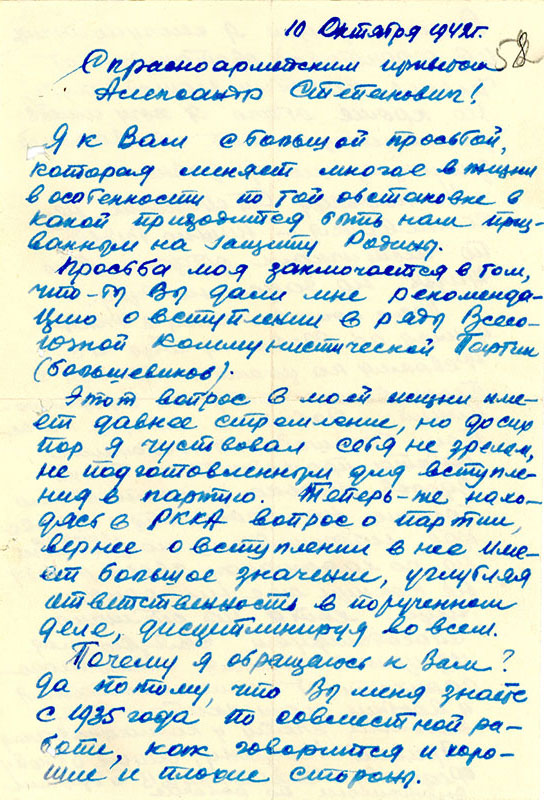 10 Октября 1942г.
58
С красноармейским приветом
Александр Степанович!
Я к Вам с большой просьбой,
которая меняет многое в жизни
в особенности по той обстановке в
какой приходится быть нам приз-
ванным на защиту Родины.
Просьба моя заключается в том,
что-бы Вы дали мне рекоменда-
цию о вступлении в ряды Всесо-
юзной Коммунистической Партии
(большевиков).
Этот вопрос в моей жизни име-
ет давнее стремление, но до сих
пор я чуствовал себя не зрелым,
не подготовленным для вступле-
ния в партию. Теперь-же нахо-
дясь в РККА вопрос о партии,
вернее о вступлении в нее име-
ет большое значение, углубляя
ответственность в порученном
деле, дисциплинируя во всем.
Почему я обращаюсь к Вам?
Да потому, что Вы меня знаете
с 1935 года по совместной ра-
боте, как говорится и хоро-
шие и плохие стороны.